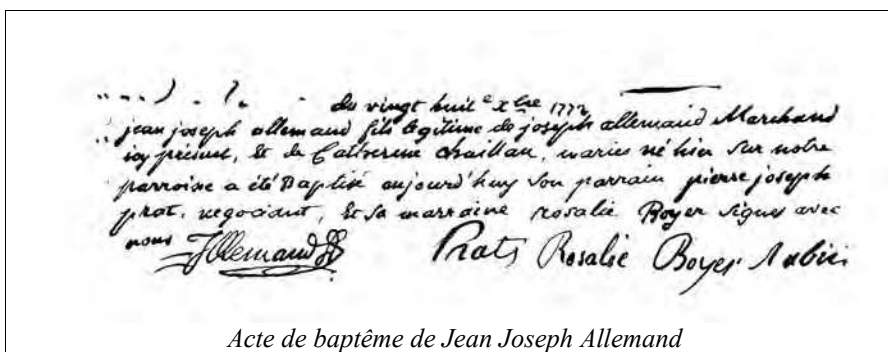 du vingt huit e xbre 1772
jean joseph allemand fils legitime de joseph allemand Marchand
icy présent, et de Catherine chaillan, maries né hier sur notre
parroise a été Baptisé aujourd'huy son parrain pierre joseph
prat, negociant, et sa marraine rosalie Boyer signés avec
nous JAllemand Prat Rosalie Boyer
Acte de baptême de Jean Joseph Allemand